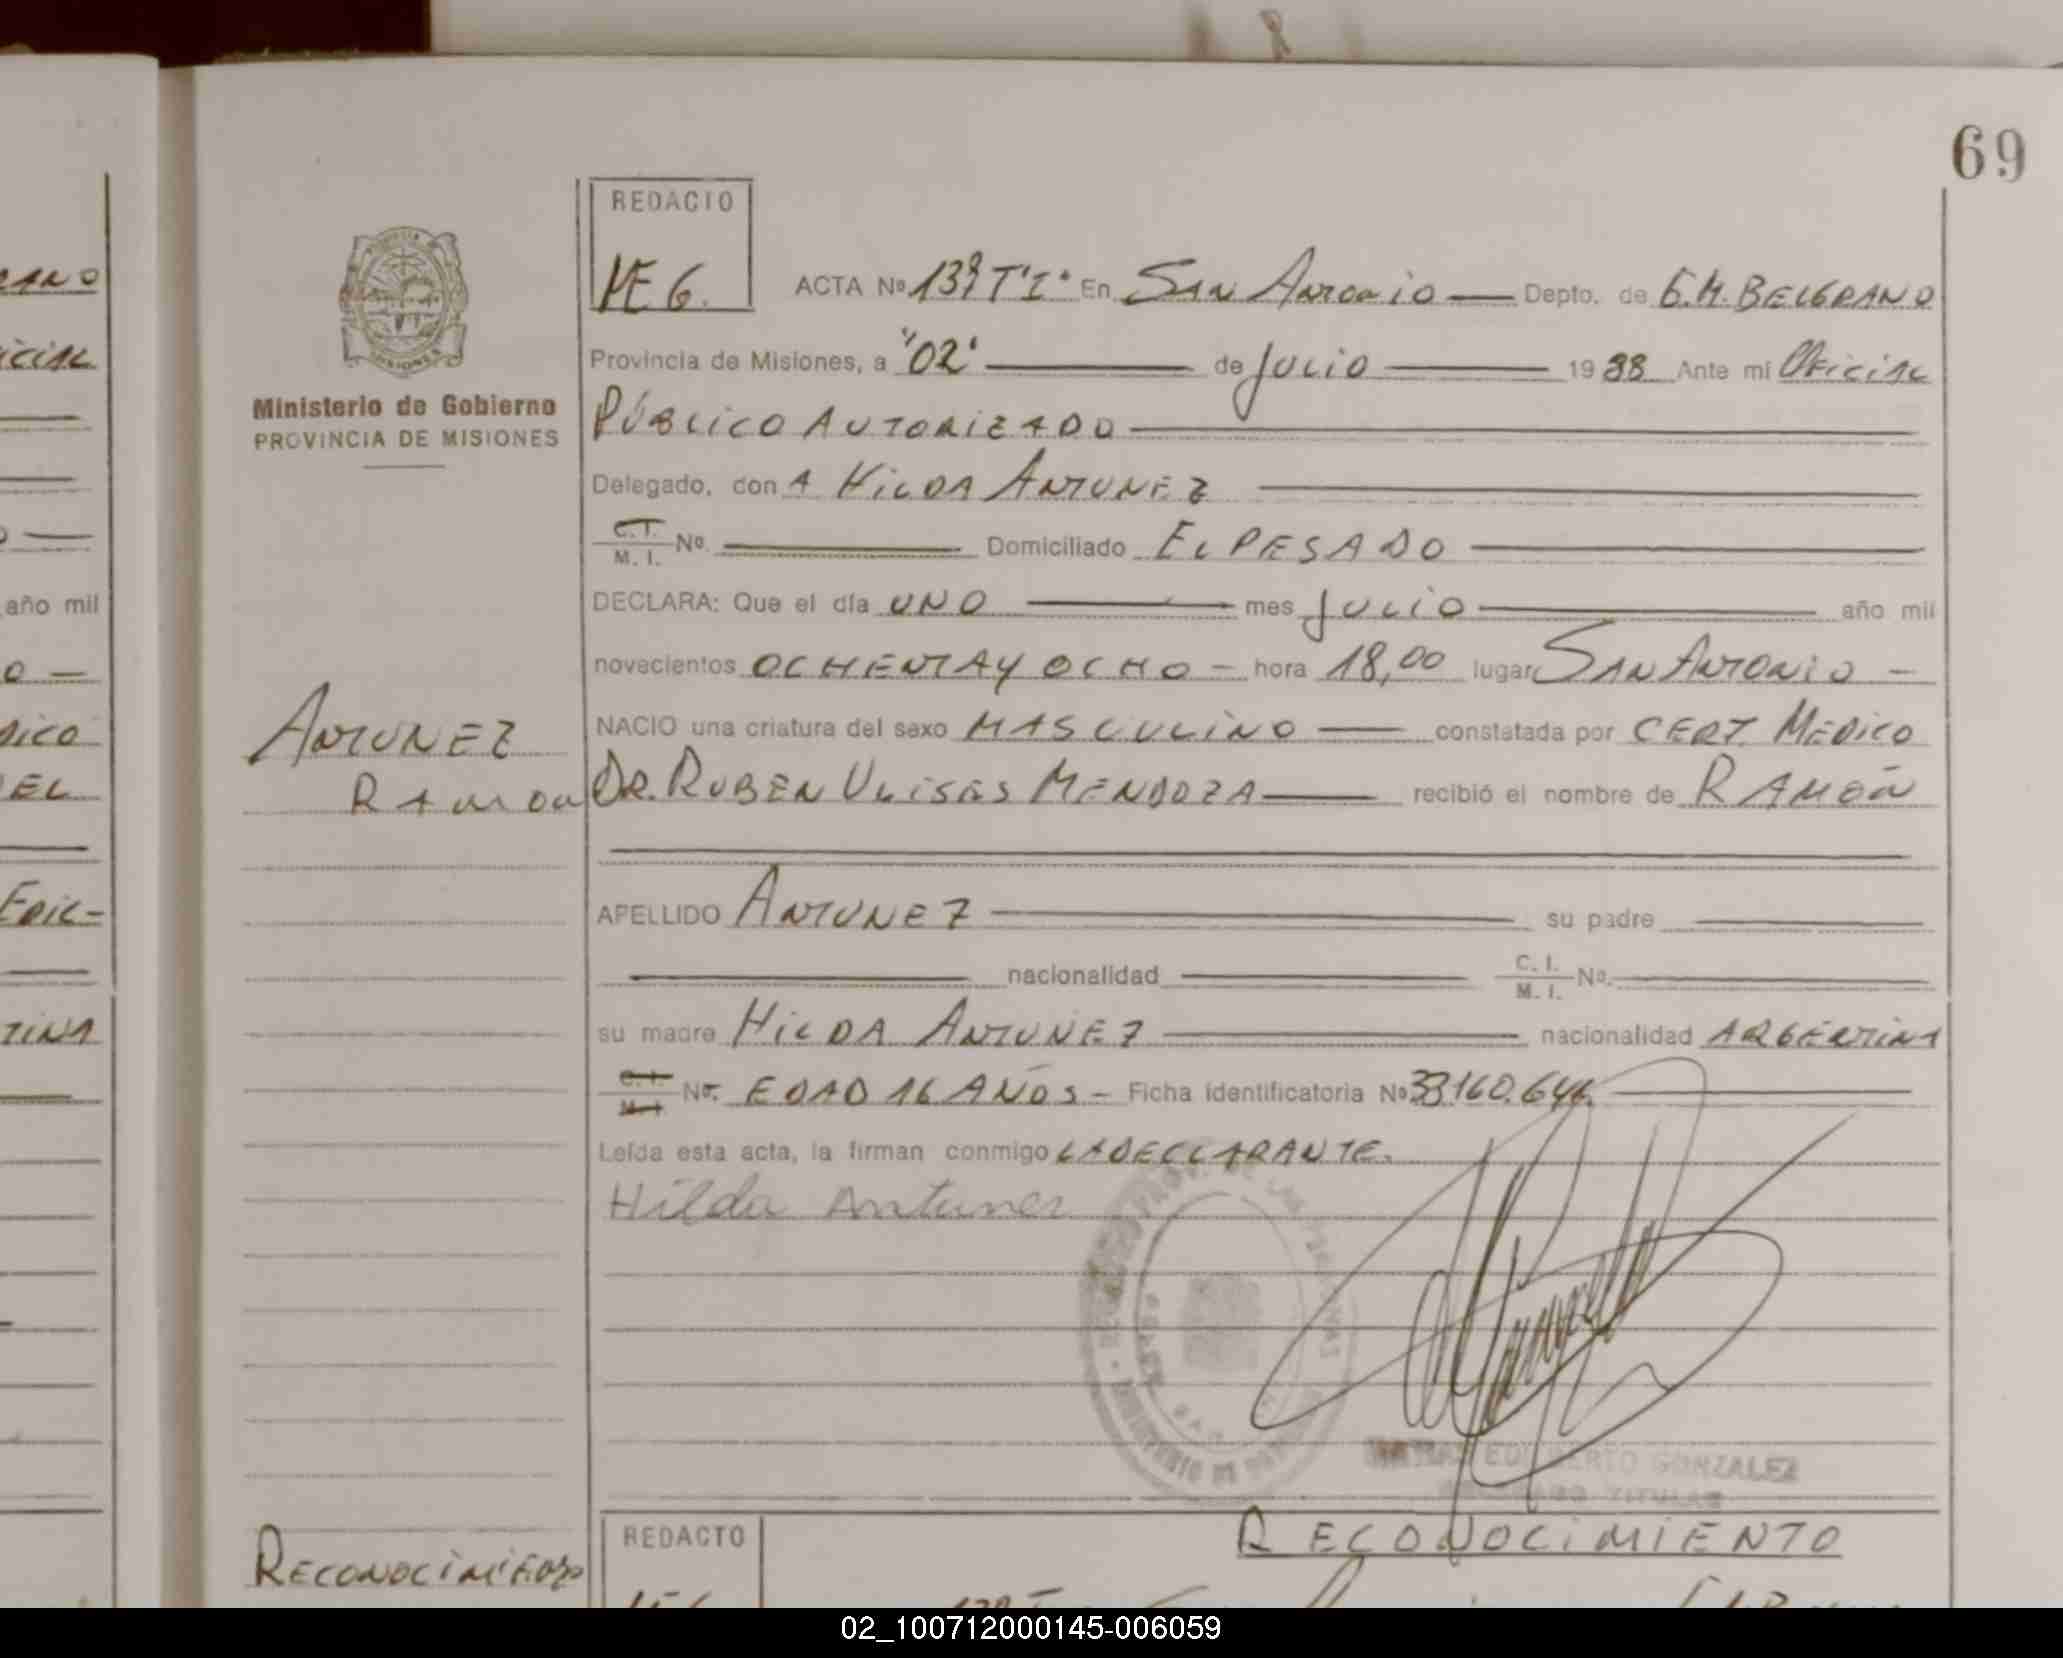 69
REDACIO
ACTA Nº En SAN ANTONIO Depto. de G.M. BELGRANO
Provincia de Misiones, a "02" de JULIO 1988 Ante mí OFICIAL
PÚBLICO AUTORIZADO
Delegado, don A HILDA ANTUNEZ
C.I. M. I. Nº. Domiciliado EL PESADO
DECLARA: Que el día UNO mes JULIO año mil
novecientos OCHENTA Y OCHO - hora 18,00 lugar SAN ANTONIO -
NACIO una criatura del sexo MASCULINO constatada por CERT. MEDICO
DR. RUBEN ULISES MENDOZA recibió el nombre de RAMÓN
APELLIDO ANTUNEZ su padre
nacionalidad C. I. M. I. Nº.
su madre HILDA ANTUNEZ nacionalidad ARGENTINA
C. I. M. I. Nº. EDAD 16 AÑOS - Ficha identificatoria Nº
Leída esta acta, la firman conmigo LA DECLARANTE.
Hilda Antunez
EDILBERTO GONZALEZ
TITULAR
Ministerio de Gobierno
PROVINCIA DE MISIONES
ANTUNEZ
RAMON
RECONOCIMIENTO
REDACTO
RECONOCIMIENTO
año mil
02_100712000145-006059